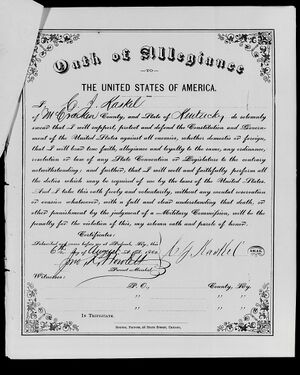 Oath of Allegiance
—TO—
THE UNITED STATES OF AMERICA.
I, C J Haskel
of McCracken County, and State of Kentucky do solemnly
swear that I will support, protect and defend the Constitution and Government
of the United States against all enemies, whether domestic or foreign,
that I will bear true faith, allegiance and loyalty to the same, any ordinance,
resolution or law of any State Convention or Legislature to the contrary
notwithstanding; and further, that I will well and faithfully perform all
the duties which may be required of me by the laws of the United States.
And I take this oath freely and voluntarily, without any mental reservation
or evasion whatsoever, with a full and clear understanding that death, or
other punishment by the judgment of a Military Commission, will be the
penalty for the violation of this, my solemn oath and parole of honor.
Certificate:
Subscribed and sworn before me at Paducah, Ky., this
6th day of August 186
Provost Marshal.
Haskel
SEAL
Witnesses:
P. O., County, Ky.
" " "
" " "
" " "
IN TRIPLICATE.